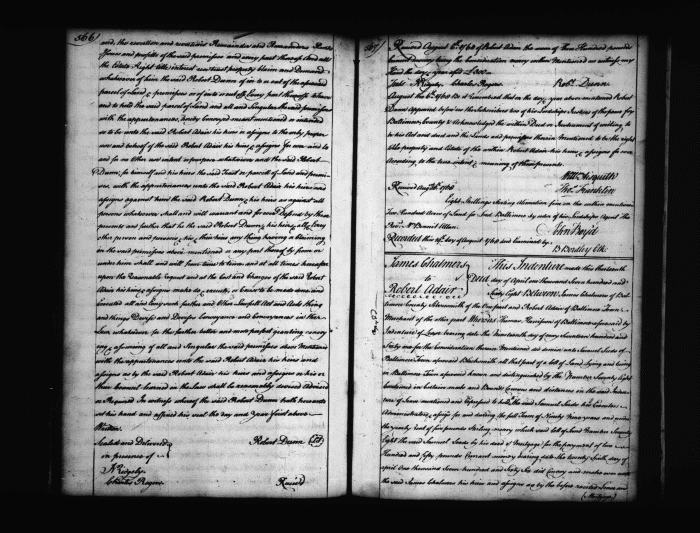 566
and the reversion and reversions Remainder and Remainders Rents
Issues and profits of the said premisses and every part thereof And all
the Estate Right title interest use trust property Claim and Demand
whatsoever of him the said Robert Dunn of in to or out of the aforesaid
parcel of Land & premisses or of in to or out of Every part thereof To have
and to hold the said parcel of Land and all and Singular the said premisses
with the appurtenances hereby Conveyed meant mentioned or intended
so to be unto the said Robert Adair his heirs & assigns to the only proper
use and behoof of the said Robert Adair his heirs & assigns for ever and to
and for no other use intent or purpose whatsoever and the said Robert
Dunn for himself and his heirs the said Tract or parcell of Land and premi-
ses with the appurtenances unto the said Robert Adair his heirs and
assigns against him the said Robert Dunn his heirs and against all
persons whatsoever shall and will warrant and for ever Defend by these
presents and further that he the said Robert Dunn his heirs & all & every
other person and persons his their heirs any thing having or Claiming
in the said premisses above mentioned or any part thereof by from or
under him shall and will from time to time and at all times hereafter
upon the Reasonable request and at the Cost and Charges of the said Robert
Adair his heirs & assigns make do & execute or Cause to be made done and
Executed all and Every such further and other Lawfull Act and Acts thing
and things Device and Devices Conveyance and Conveyances in the
Law whatsoever for the further better and more perfect granting convey-
ing & assuring of all and Singular the said premisses above Mentioned
with the appurtenances unto the said Robert Adair his heirs and
assigns as by the said Robert Adair his heirs and assigns or his or
their Council learned in the Law shall be reasonably devised advised
or Required In witness whereof the said Robert Dunn hath hereunto
set his hand and affixed his seal the day and year first above
Written
Sealed and Delivered
in presence of
Robert Dunn (Seal)
N Ridgely
Charles Rogers
Received
567
Received August 6th 1760 of Robert Adair the sum of Three Hundred pounds
money being the Consideration money within Mentioned as witness my
Hand the day & year afsd £300
Test N Ridgely Charles Rogers
Robt Dunn
August the 6th 1760 Be it Remembered that on the day & year above mentioned Robert
Dunn Appeared before us the Subscribers two of his Lordships Justices of the peace for
Baltimore County & Acknowledged the within Deed or Instrument of writing to
be his Act and deed and the Lands and premisses therein Mentioned to be the right
title property and Estate of the within Robert Adair his heirs & assigns for ever
According to the true intent & meaning of these presents
Wm Asquith
Thos Franklin
Received Aug 1760
Eight Shillings Sterling Alienation fine on the within mentioned
Two Hundred Acres of Land for Lord Baltimore by order of his Lordships Agent The
Revd Mr Bennet Allen
Jno Boyd
Recorded this day of August 1760 and Examined by
B Bordley Clk
James Chalmers
to
Robert Adair
This Indenture made this thirteenth
Day of April one Thousand Seven hundred and
Sixty Eight Between James Chalmers of Bal-
timore County Silversmith of the One part and Robert Adair of Baltimore Town
Merchant of the other part Whereas Thomas Harrison of Baltimore aforesaid by
Indenture of Lease bearing date the day of May Seventeen hundred and
Sixty one for the Consideration therein Mentioned did demise unto Samuel Sands of
Baltimore Town aforesaid Blacksmith all that part of a lot of Land Lying and being
in Baltimore Town aforesaid known and distinguished by the Number Seventy Eight
Contained in certain metes and Bounds Courses and distances in the said Inden-
ture of Lease mentioned and Expressed to hold to the said Samuel Sands his Executors
Administrators & assigns for and during the full Term of Ninety Nine years and under
the yearly rent of four pounds Sterling money which said lot of Land Number Seventy
Eight the said Samuel Sands by his deed of Mortgage for the payment of One
Hundred and fifty pounds Current money bearing date the twenty Sixth day of
April One Thousand Seven hundred and Sixty Six did Convey and make over unto
the said James Chalmers his heirs and assigns as by the before recited Lease and
(Mortgage)